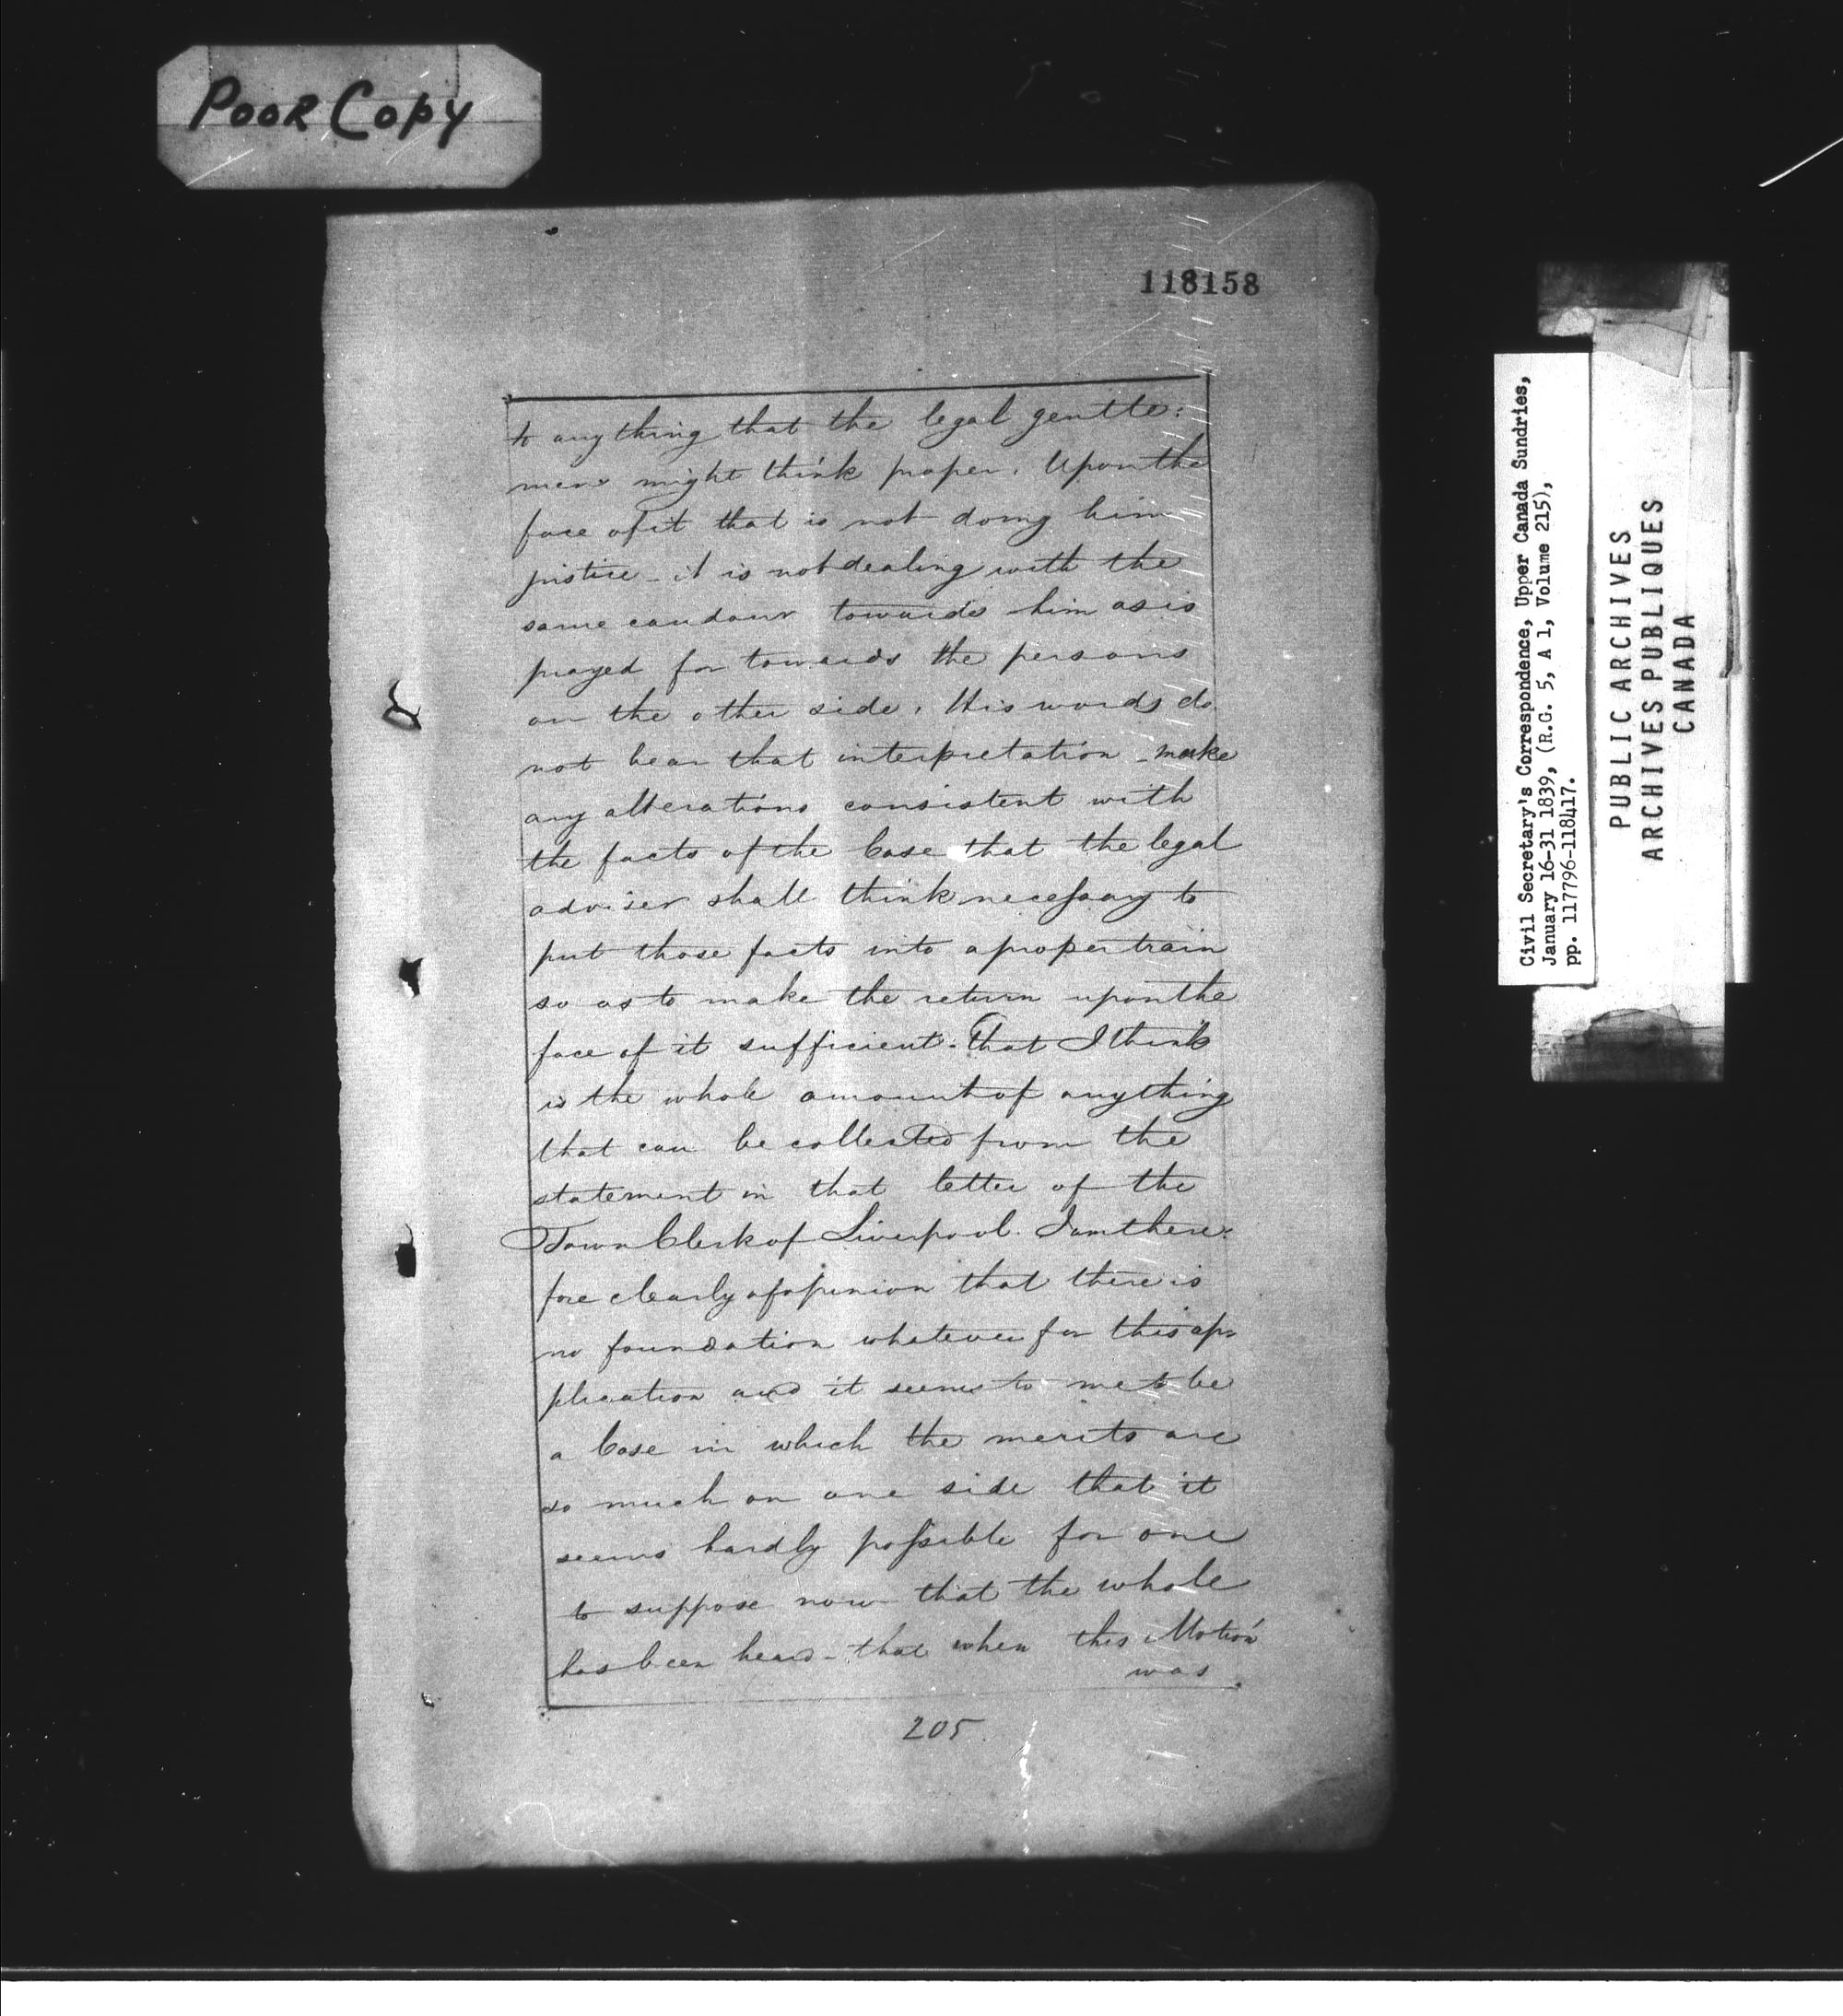 POOR COPY
118158
to anything that the legal gentle:
men might think proper. Upon the
face of it that is not doing him
justice - it is not dealing with the
same candour towards him as is
prayed for towards the persons
on the other side. His words do
not bear that interpretation - make
any alterations consistent with
the facts of the Case that the legal
adviser shall think necessary to
put those facts into a proper train
so as to make the return upon the
face of it sufficient. That I think
is the whole amount of anything
that can be collected from the
statement in that letter of the
Town Clerk of Liverpool. I am there:
fore clearly of opinion that there is
no foundation whatever for this ap
plication and it seems to me to be
a Case in which the merits are
so much on one side that it
seems hardly possible for one
to suppose now that the whole
has been heard - that when this Motion
was
205
Civil Secretary's Correspondence, Upper Canada Sundries,
January 16-31 1839, (R.G. 5, A 1, Volume 215),
pp. 117796-118417.
PUBLIC ARCHIVES
ARCHIVES PUBLIQUES
CANADA